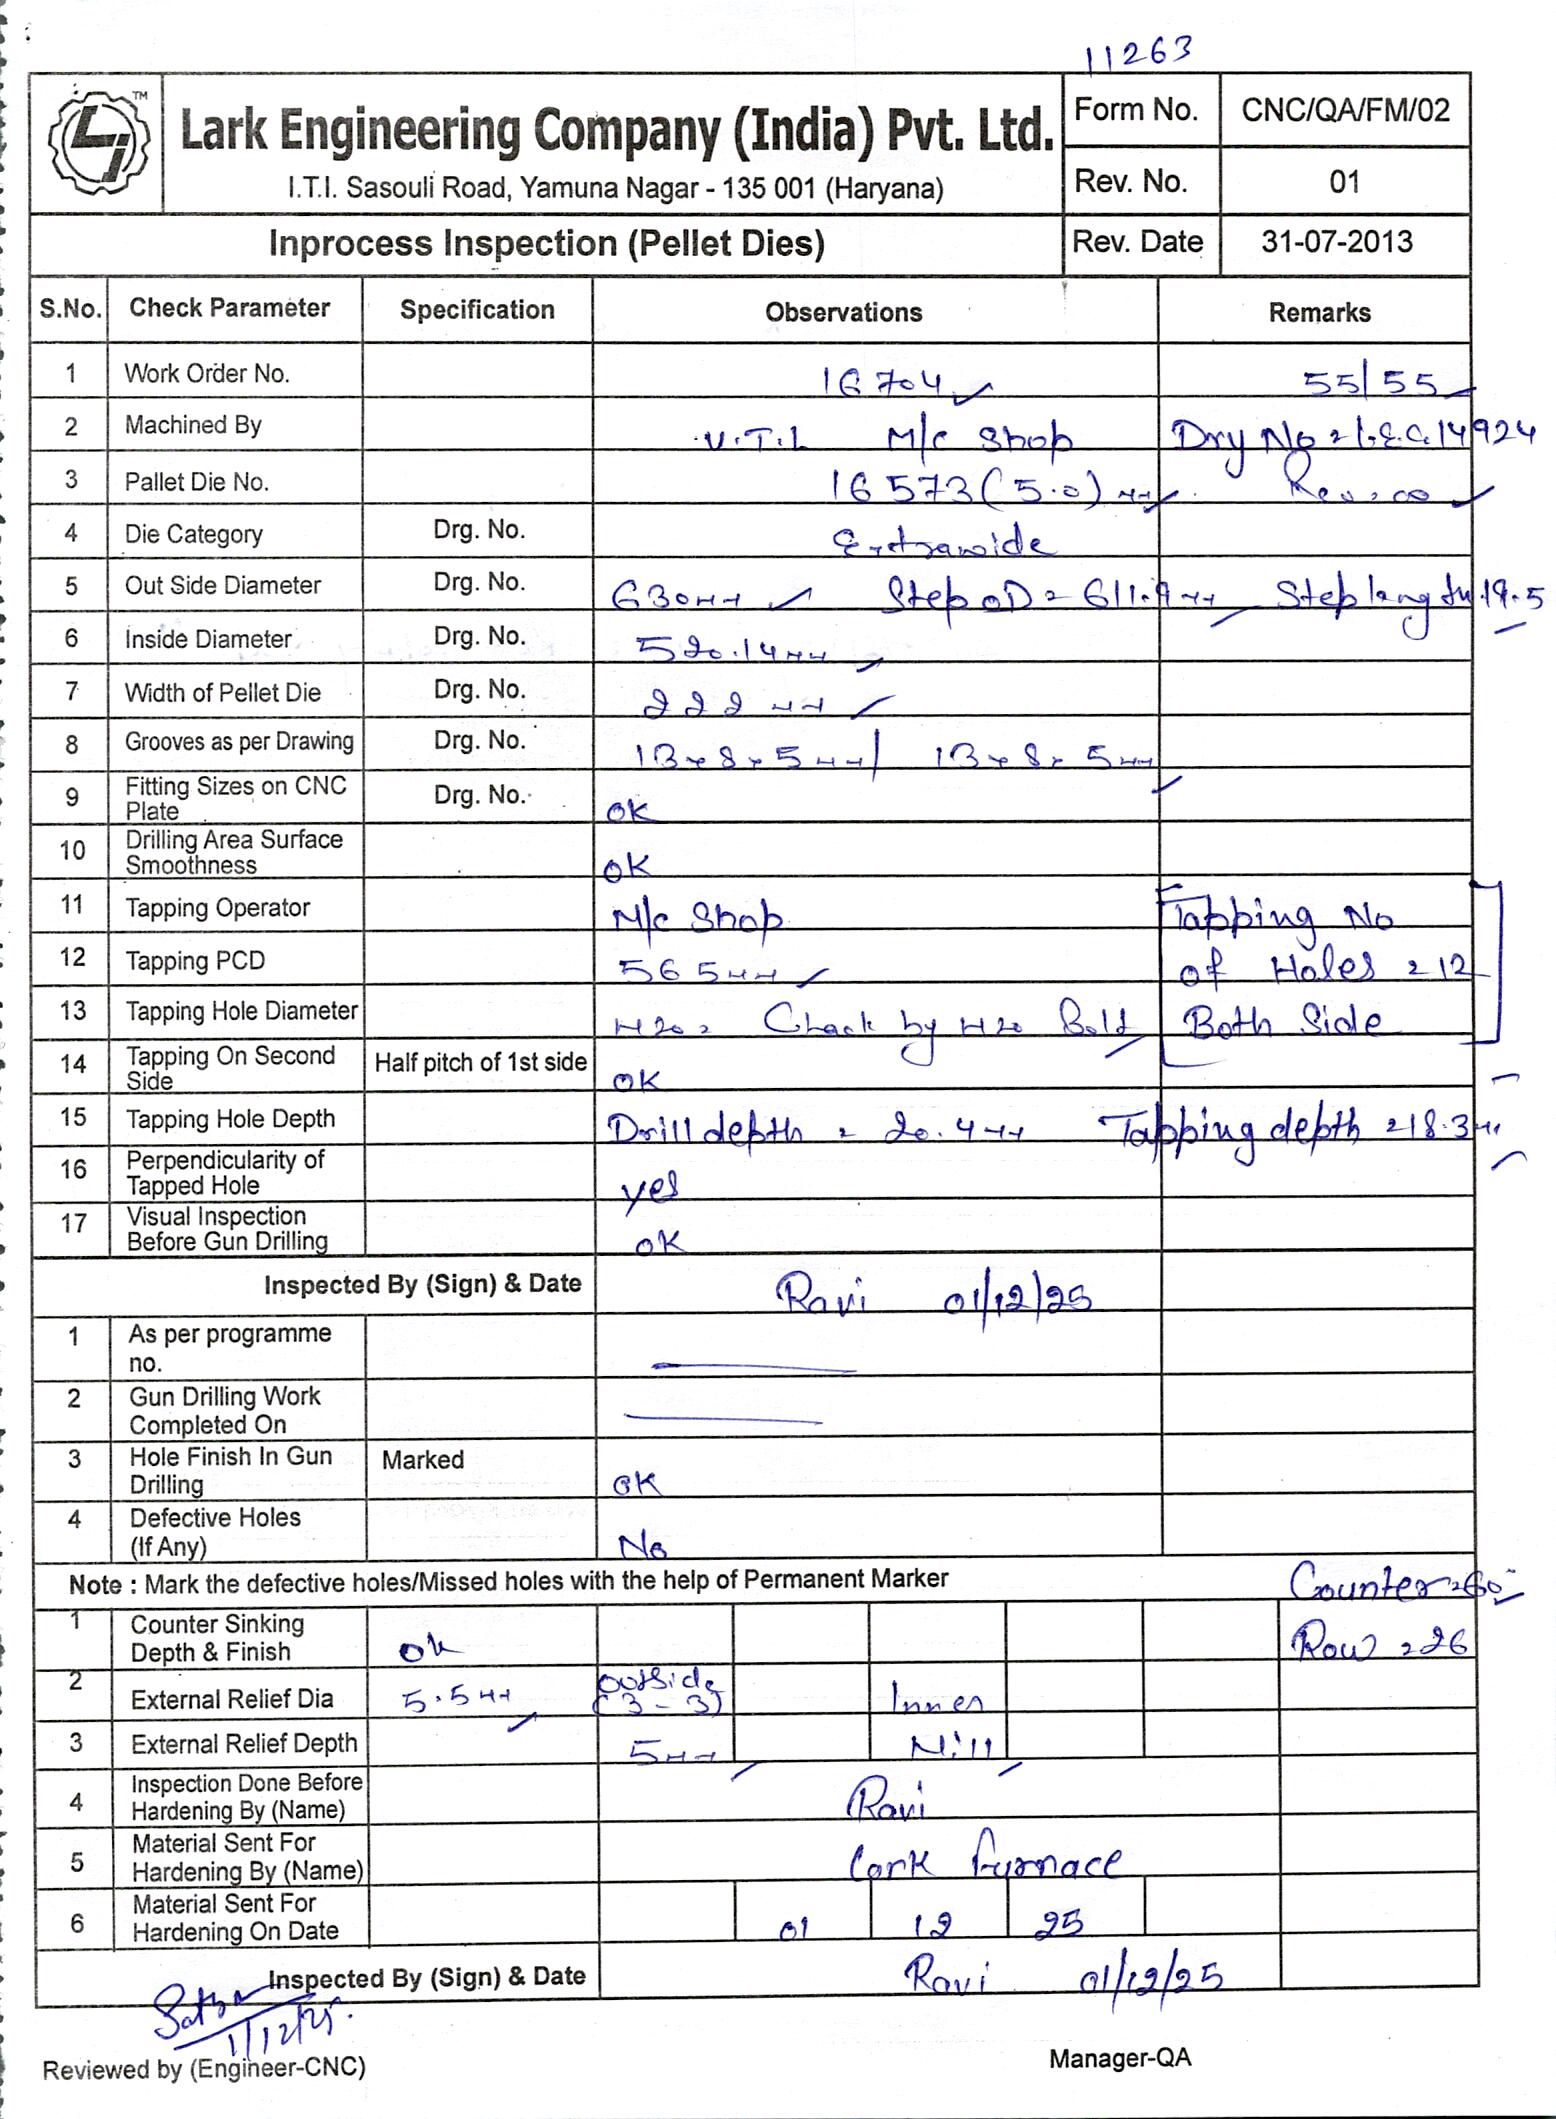 11263
TM
Lark Engineering Company (India) Pvt. Ltd.
I.T.I. Sasouli Road, Yamuna Nagar - 135 001 (Haryana)
Form No. CNC/QA/FM/02
Rev. No. 01
Inprocess Inspection (Pellet Dies) Rev. Date 31-07-2013
S.No. Check Parameter Specification Observations Remarks
1 Work Order No. 16704 55/55
2 Machined By V.T.L M/c Shop Drg No = L.E.C. 14924
3 Pallet Die No. 16573 (5.0) mm Rev = 00
4 Die Category Drg. No. Extrawide
5 Out Side Diameter Drg. No. 630mm Step OD = 611.9mm Step length 19.5
6 Inside Diameter Drg. No. 520.14mm
7 Width of Pellet Die Drg. No. 222 mm
8 Grooves as per Drawing Drg. No. 13x8x5mm/ 13x8x5mm
9 Fitting Sizes on CNC Plate Drg. No. OK
10 Drilling Area Surface Smoothness OK
11 Tapping Operator M/c Shop Tapping No
12 Tapping PCD 565mm of Holes = 12
13 Tapping Hole Diameter M20 = Chack by M20 Bolt Both Side
14 Tapping On Second Side Half pitch of 1st side OK
15 Tapping Hole Depth Drill depth = 20.4mm Tapping depth = 18.3mm
16 Perpendicularity of Tapped Hole yes
17 Visual Inspection Before Gun Drilling OK
Inspected By (Sign) & Date Ravi 01/12/25
1 As per programme no.
2 Gun Drilling Work Completed On
3 Hole Finish In Gun Drilling Marked OK
4 Defective Holes (If Any) No
Note : Mark the defective holes/Missed holes with the help of Permanent Marker Counter = 60°
1 Counter Sinking Depth & Finish ok Row = 26
2 External Relief Dia 5.5mm Outside (3-3) Inner
3 External Relief Depth 5mm Nill
4 Inspection Done Before Hardening By (Name) Ravi
5 Material Sent For Hardening By (Name) Lark furnace
6 Material Sent For Hardening On Date 01 12 25
Inspected By (Sign) & Date Ravi 01/12/25
1/12/25.
Reviewed by (Engineer-CNC) Manager-QA